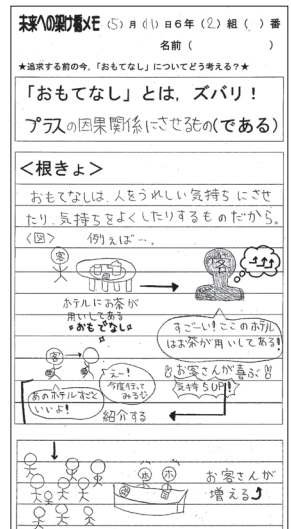 未来への架け橋メモ (5)月(11)日6年(2)組( )番
名前( )
★追求する前の今,「おもてなし」についてどう考える?★
「おもてなし」とは,ズバリ!
プラスの因果関係にさせるもの(である)
<根きょ>
おもてなしは、人をうれしい気持ちにさせ
たり、気持ちをよくしたりするものだから。
<図> 例えば…、
客
客
ホテルにお茶が
用いしてある
*おもてなし*
すごーい!ここのホテル
はお茶が用いしてある!
客
えー!
今度行って
みるね
あのホテルすごく
いいよ!
お客さんが喜ぶ
気持ちUP!!
紹介する
ホ
ホ
お客さんが
増える